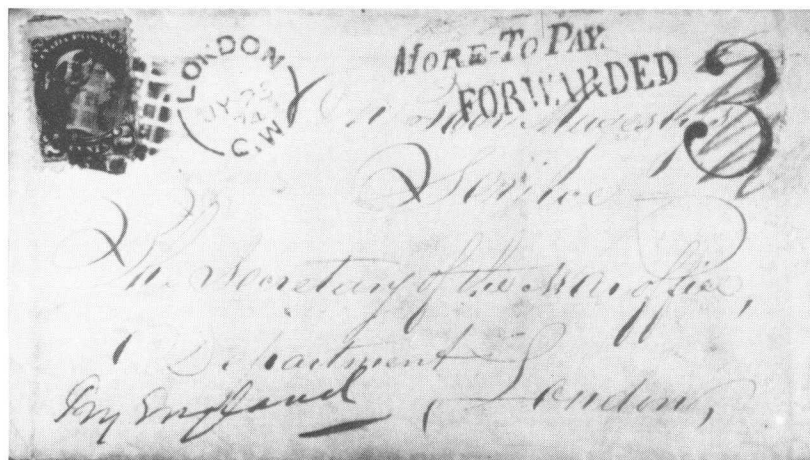 LONDON
JY 25
74
C.W.
MORE-TO PAY.
FORWARDED
3
On Her Majesty's
Service
The Secretary of the War Office,
Department
London,
England